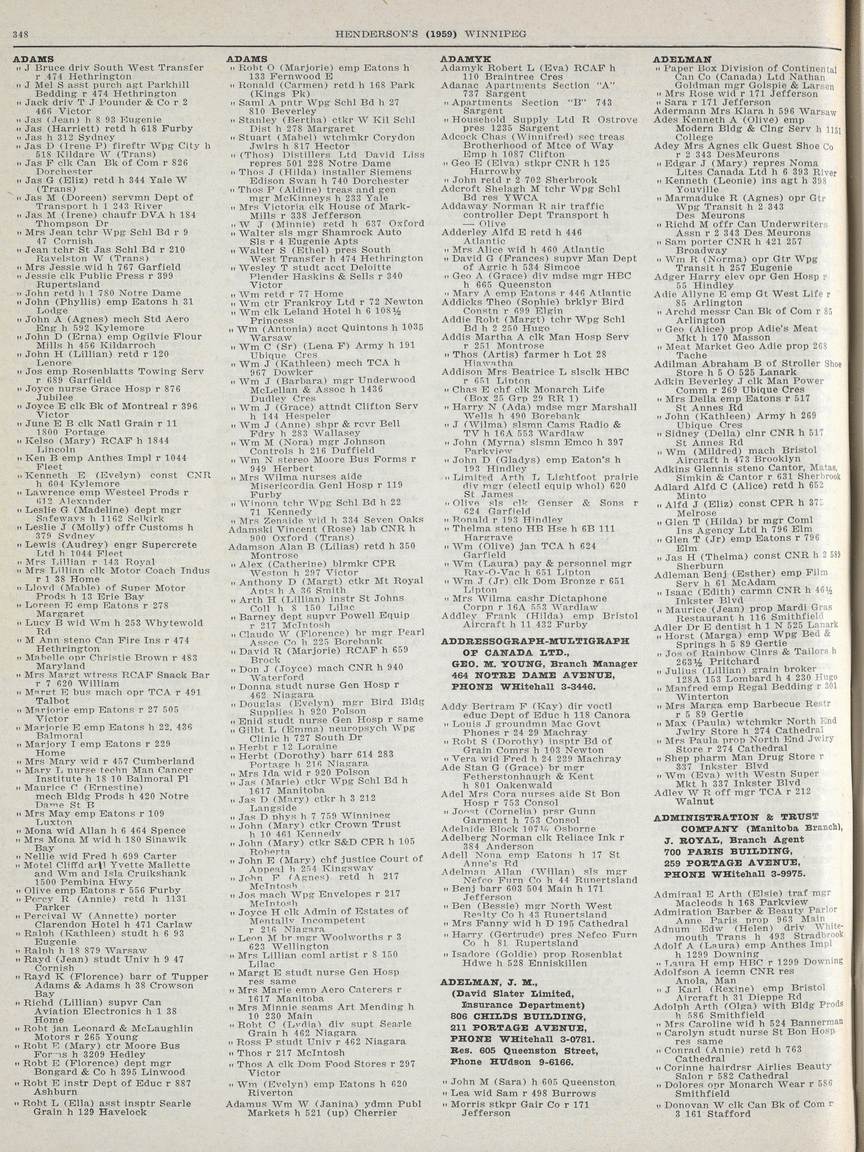 348
HENDERSON'S (1959) WINNIPEG
ADAMS
" J Bruce driv South West Transfer
r 474 Hethrington
" J Mel S asst purch agt Parkhill
Bedding r 474 Hethrington
" Jack driv T J Pounder & Co r 2
466 Victor
" Jas (Jean) h 8 93 Eugenie
" Jas (Harriett) retd h 618 Furby
" Jas h 312 Sydney
" Jas D (Irene P) fireftr Wpg City h
518 Kildare W (Trans)
" Jas F clk Can Bk of Com r 826
Dorchester
" Jas G (Eliz) retd h 344 Yale W
(Trans)
" Jas M (Doreen) servmn Dept of
Transport h 1 243 River
" Jas M (Irene) chaufr DVA h 184
Thompson Dr
" Mrs Jean tchr Wpg Schl Bd r 9
47 Cornish
" Jean tchr St Jas Schl Bd r 210
Ravelston W (Trans)
" Mrs Jessie wid h 767 Garfield
" Jessie clk Public Press r 399
Rupertsland
" John retd h 1 780 Notre Dame
" John (Phyllis) emp Eatons h 31
Lodge
" John A (Agnes) mech Std Aero
Eng h 592 Kylemore
" John D (Erna) emp Ogilvie Flour
Mills h 456 Kildarroch
" John H (Lillian) retd r 120
Lenore
" Jos emp Rosenblatts Towing Serv
r 689 Garfield
" Joyce nurse Grace Hosp r 876
Jubilee
" Joyce E clk Bk of Montreal r 396
Victor
" June E B clk Natl Grain r 11
1800 Portage
" Kelso (Mary) RCAF h 1844
Lincoln
" Ken B emp Anthes Impl r 1044
Fleet
" Kenneth E (Evelyn) const CNR
h 604 Kylemore
" Lawrence emp Westeel Prods r
612 Alexander
" Leslie G (Madeline) dept mgr
Safeways h 1162 Selkirk
" Leslie J (Molly) offr Customs h
379 Sydney
" Lewis (Audrey) engr Supercrete
Ltd h 1044 Fleet
" Mrs Lillian r 143 Royal
" Mrs Lillian clk Motor Coach Indus
r 1 38 Home
" Lloyd (Mable) of Super Motor
Prods h 13 Erle Bay
" Loreen E emp Eatons r 278
Margaret
" Lucy B wid Wm h 253 Whytewold
Rd
" M Ann steno Can Fire Ins r 474
Hethrington
" Mabelle opr Christie Brown r 483
Maryland
" Mrs Margt wtress RCAF Snack Bar
r 7 620 William
" Margt E bus mach opr TCA r 491
Talbot
" Marjorie emp Eatons r 27 505
Victor
" Marjorie E emp Eatons h 22, 436
Balmoral
" Marjory I emp Eatons r 229
Home
" Mrs Mary wid r 457 Cumberland
" Mary L nurse techn Man Cancer
Institute h 18 10 Balmoral Pl
" Maurice C (Ernestine)
mech Bldg Prods h 420 Notre
Dame St B
" Mrs May emp Eatons r 109
Luxton
" Mona wid Allan h 6 464 Spence
" Mrs Mona M wid h 180 Sinawik
Bay
" Nellie wid Fred h 699 Carter
" Motel Cliffd and Yvette Mallette
and Wm and Isla Cruikshank
1500 Pembina Hwy
" Olive emp Eatons r 556 Furby
" Percy R (Annie) retd h 1131
Parker
" Percival W (Annette) porter
Clarendon Hotel h 471 Carlaw
" Ralph (Kathleen) studt h 6 93
Eugenie
" Ralph h 18 879 Warsaw
" Rayd (Jean) studt Univ h 9 47
Cornish
" Rayd K (Florence) barr of Tupper
Adams & Adams h 38 Crowson
Bay
" Richd (Lillian) supvr Can
Aviation Electronics h 1 38
Home
" Robt jan Leonard & McLaughlin
Motors r 265 Young
" Robt E (Mary) ctr Moore Bus
Forms h 3209 Hedley
" Robt E (Florence) dept mgr
Bongard & Co h 395 Linwood
" Robt E instr Dept of Educ r 887
Ashburn
" Robt L (Ella) asst insptr Searle
Grain h 129 Havelock
ADAMS
" Robt O (Marjorie) emp Eatons h
133 Fernwood E
" Ronald (Carmen) retd h 168 Park
(Kings Pk)
" Saml A pntr Wpg Schl Bd h 27
810 Beverley
" Stanley (Bertha) ctkr W Kil Schl
Dist h 278 Margaret
" Stuart (Mabel) wtchmkr Corydon
Jwlrs h 817 Hector
" (Thos) Distillers Ltd David Liss
repres 501 228 Notre Dame
" Thos J (Hilda) installer Siemens
Edison Swan h 740 Dorchester
" Thos P (Aldine) treas and gen
mgr McKinneys h 233 Yale
" Mrs Victoria clk House of Mark-
Mills r 338 Jefferson
" W J (Minnie) retd h 637 Oxford
" Walter sls mgr Shamrock Auto
Sls r 4 Eugenie Apts
" Walter S (Ethel) pres South
West Transfer h 474 Hethrington
" Wesley T studt acct Deloitte
Plender Haskins & Sells r 340
Victor
" Wm retd r 77 Home
" Wm ctr Frankroy Ltd r 72 Newton
" Wm clk Leland Hotel h 6 108½
Princess
" Wm (Antonia) acct Quintons h 1035
Warsaw
" Wm C (Sr) (Lena F) Army h 191
Ubique Cres
" Wm J (Kathleen) mech TCA h
967 Dowker
" Wm J (Barbara) mgr Underwood
McLellan & Assoc h 1436
Dudley Cres
" Wm J (Grace) attndt Clifton Serv
h 144 Hespeler
" Wm J (Anne) shpr & rcvr Bell
Fdry h 283 Wallasey
" Wm M (Nora) mgr Johnson
Controls h 216 Duffield
" Wm N stereo Moore Bus Forms r
949 Herbert
" Mrs Wilma nurses aide
Misericordia Genl Hosp r 119
Furby
" Winona tchr Wpg Schl Bd h 22
71 Kennedy
" Mrs Zenaide wid h 334 Seven Oaks
Adamski Vincent (Rose) lab CNR h
900 Oxford (Trans)
Adamson Alan B (Lilias) retd h 350
Montrose
" Alex (Catherine) blrmkr CPR
Weston h 297 Victor
" Anthony D (Margt) ctkr Mt Royal
Apts h A 36 Smith
" Arth H (Lillian) instr St Johns
Coll h 8 150 Lilac
" Barney dept supvr Powell Equip
r 217 McIntosh
" Claude W (Florence) br mgr Pearl
Assce Co h 225 Borebank
" David R (Marjorie) RCAF h 659
Brock
" Don J (Joyce) mach CNR h 940
Waterford
" Donna studt nurse Gen Hosp r
462 Niagara
" Douglas (Evelyn) mgr Bird Bldg
Supplies h 920 Polson
" Enid studt nurse Gen Hosp r same
" Gilbt L (Emma) neuropsych Wpg
Clinic h 727 South Dr
" Herbt r 12 Loraine
" Herbt (Dorothy) barr 614 283
Portage h 216 Niagara
" Mrs Ida wid r 920 Polson
" Jas (Marie) ctkr Wpg Schl Bd h
1617 Manitoba
" Jas D (Mary) ctkr h 3 212
Langside
" Jas D phys h 7 759 Winnipeg
" John (Mary) ctkr Crown Trust
h 10 461 Kennedy
" John (Mary) ctkr S&D CPR h 105
Roberta
" John E (Mary) chf justice Court of
Appeal h 254 Kingsway
" John F (Agnes) retd h 217
McIntosh
" Jos mach Wpg Envelopes r 217
McIntosh
" Joyce H clk Admin of Estates of
Mentally Incompetent
r 216 Niagara
" Leon M br mgr Woolworths r 3
623 Wellington
" Mrs Lillian coml artist r 8 150
Lilac
" Margt E studt nurse Gen Hosp
res same
" Mrs Marie emp Aero Caterers r
1617 Manitoba
" Mrs Minnie seams Art Mending h
10 230 Main
" Robt C (Lydia) div supt Searle
Grain h 462 Niagara
" Ross P studt Univ r 462 Niagara
" Thos r 217 McIntosh
" Thos A clk Dom Food Stores r 297
Victor
" Wm (Evelyn) emp Eatons h 620
Riverton
Adamus Wm W (Janina) ydmn Publ
Markets h 521 (up) Cherrier
ADAMYK
Adamyk Robert L (Eva) RCAF h
110 Braintree Cres
Adanac Apartments Section "A"
737 Sargent
" Apartments Section "B" 743
Sargent
" Household Supply Ltd R Ostrove
pres 1235 Sargent
Adcock Chas (Winnifred) sec treas
Brotherhood of Mtce of Way
Emp h 1087 Clifton
" Geo E (Elva) stkpr CNR h 125
Harrowby
" John retd r 2 702 Sherbrook
Adcroft Shelagh M tchr Wpg Schl
Bd res YWCA
Addaway Norman R air traffic
controller Dept Transport h
— Olive
Adderley Alfd E retd h 446
Atlantic
" Mrs Alice wid h 460 Atlantic
" David G (Frances) supvr Man Dept
of Agric h 534 Simcoe
" Geo A (Grace) div mdse mgr HBC
h 665 Queenston
" Mary A emp Eatons r 446 Atlantic
Addicks Theo (Sophie) brklyr Bird
Constn r 699 Elgin
Addie Robt (Margt) tchr Wpg Schl
Bd h 2 250 Hugo
Addis Martha A clk Man Hosp Serv
r 251 Montrose
" Thos (Artis) farmer h Lot 28
Hiawatha
Addison Mrs Beatrice L slsclk HBC
r 651 Lipton
" Chas E chf clk Monarch Life
(Box 25 Grp 29 RR 1)
" Harry N (Ada) mdse mgr Marshall
Wells h 490 Borebank
" J (Wilma) slsmn Cams Radio &
TV h 16A 553 Wardlaw
" John (Myrna) slsmn Emco h 397
Parkview
" John D (Gladys) emp Eaton's h
193 Hindley
" Limited Arth L Lightfoot prairie
div mgr (electl equip whol) 620
St James
" Olive sls clk Genser & Sons r
624 Garfield
" Ronald r 193 Hindley
" Thelma steno HB Hse h 6B 111
Hargrave
" Wm (Olive) jan TCA h 624
Garfield
" Wm (Laura) pay & personnel mgr
Ray-O-Vac h 651 Lipton
" Wm J (Jr) clk Dom Bronze r 651
Lipton
" Mrs Wilma cashr Dictaphone
Corpn r 16A 553 Wardlaw
Addley Frank (Hilda) emp Bristol
Aircraft h 11 432 Furby
ADDRESSOGRAPH-MULTIGRAPH
OF CANADA LTD.,
GEO. M. YOUNG, Branch Manager
464 NOTRE DAME AVENUE,
PHONE WHitehall 3-3446.
Addy Bertram F (Kay) dir voctl
educ Dept of Educ h 118 Canora
" Louis J groundmn Mac Govt
Phones r 24 29 Machray
" Robt S (Dorothy) insptr Bd of
Grain Comrs h 103 Newton
" Vera wid Fred h 24 229 Machray
Ade Stan G (Grace) br mgr
Fetherstonhaugh & Kent
h 801 Oakenwald
Adel Mrs Cora nurses aide St Bon
Hosp r 753 Consol
" Joost (Cornelia) prsr Gunn
Garment h 753 Consol
Adelaide Block 107¼ Osborne
Adelberg Norman clk Reliace Ink r
384 Anderson
Adell Nona emp Eatons h 17 St
Anne's Rd
Adelman Allan (Willan) sls mgr
Nefco Furn Co h 44 Rupertsland
" Benj barr 603 504 Main h 171
Jefferson
" Ben (Bessie) mgr North West
Realty Co h 43 Rupertsland
" Mrs Fanny wid h D 195 Cathedral
" Harry (Gertrude) pres Nefco Furn
Co h 81 Rupertsland
" Isadore (Goldie) prop Rosenblat
Hdwe h 528 Enniskillen
ADELMAN, J. M.,
(David Slater Limited,
Insurance Department)
806 CHILDS BUILDING,
211 PORTAGE AVENUE,
PHONE WHitehall 3-0781.
Res. 605 Queenston Street,
Phone HUdson 9-6166.
" John M (Sara) h 605 Queenston
" Lea wid Sam r 498 Burrows
" Morris stkpr Gair Co r 171
Jefferson
ADELMAN
" Paper Box Division of Continental
Can Co (Canada) Ltd Nathan
Goldman mgr Golspie & Larsen
" Mrs Rose wid r 171 Jefferson
" Sara r 171 Jefferson
Adermann Mrs Klara h 596 Warsaw
Ades Kenneth A (Olive) emp
Modern Bldg & Clng Serv h 1151
College
Adey Mrs Agnes clk Guest Shoe Co
r 2 343 DesMeurons
" Edgar J (Mary) repres Noma
Lites Canada Ltd h 6 393 River
" Kenneth (Leonie) ins agt h 398
Youville
" Marmaduke R (Agnes) opr Gtr
Wpg Transit h 2 343
Des Meurons
" Richd M offr Can Underwriters
Assn r 2 343 Des Meurons
" Sam porter CNR h 421 257
Broadway
" Wm R (Norma) opr Gtr Wpg
Transit h 257 Eugenie
Adger Harry elev opr Gen Hosp r
55 Hindley
Adie Allyne E emp Gt West Life r
85 Arlington
" Archd messr Can Bk of Com r 85
Arlington
" Geo (Alice) prop Adie's Meat
Mkt h 170 Masson
" Meat Market Geo Adie prop 268
Tache
Adilman Abraham B of Stroller Shoe
Store h 5 O 525 Lanark
Adkin Beverley J clk Man Power
Comm r 269 Ubique Cres
" Mrs Della emp Eatons r 517
St Annes Rd
" John (Kathleen) Army h 269
Ubique Cres
" Sidney (Della) clnr CNR h 517
St Annes Rd
" Wm (Mildred) mach Bristol
Aircraft h 473 Brooklyn
Adkins Glennis steno Cantor, Matas,
Simkin & Cantor r 631 Sherbrook
Adlard Alfd C (Alice) retd h 652
Minto
" Alfd J (Eliz) const CPR h 375
Melrose
" Glen T (Hilda) br mgr Coml
Ins Agency Ltd h 796 Elm
" Glen T (Jr) emp Eatons r 796
Elm
" Jas H (Thelma) const CNR h 2 589
Sherburn
Adleman Benj (Esther) emp Film
Serv h 61 McAdam
" Isaac (Edith) carmn CNR h 46½
Inkster Blvd
" Maurice (Jean) prop Mardi Gras
Restaurant h 116 Smithfield
Adler Dr E dentist h 1 N 525 Lanark
" Horst (Marga) emp Wpg Bed &
Springs h 5 89 Gertie
" Jos of Rainbow Clnrs & Tailors h
263½ Pritchard
" Julius (Lillian) grain broker
128A 153 Lombard h 4 230 Hugo
" Manfred emp Regal Bedding r 301
Winterton
" Mrs Marga emp Barbecue Restr
r 5 89 Gertie
" Max (Paula) wtchmkr North End
Jwlry Store h 274 Cathedral
" Mrs Paula prop North End Jwlry
Store r 274 Cathedral
" Shep pharm Man Drug Store r
337 Inkster Blvd
" Wm (Eva) with Westn Super
Mkt h 337 Inkster Blvd
Adley W R off mgr TCA r 212
Walnut
ADMINISTRATION & TRUST
COMPANY (Manitoba Branch),
J. ROYAL, Branch Agent
700 PARIS BUILDING,
259 PORTAGE AVENUE,
PHONE WHitehall 3-9975.
Admiraal E Arth (Elsie) traf mgr
Macleods h 168 Parkview
Admiration Barber & Beauty Parlor
Anne Paris prop 963 Main
Adnum Edw (Helen) driv White-
mouth Trans h 493 Stradbrook
Adolf A (Laura) emp Anthes Impl
h 1299 Downing
" Laura H emp HBC r 1299 Downing
Adolfson A icemn CNR res
Anola, Man
" J Karl (Rexine) emp Bristol
Aircraft h 31 Dieppe Rd
Adolph Arth (Olga) with Bldg Prods
h 586 Smithfield
" Mrs Caroline wid h 524 Bannerman
" Carolyn studt nurse St Bon Hosp
res same
" Conrad (Annie) retd h 763
Cathedral
" Corinne hairdrsr Airlies Beauty
Salon r 582 Cathedral
" Dolores opr Monarch Wear r 586
Smithfield
" Donovan W clk Can Bk of Com r
3 161 Stafford